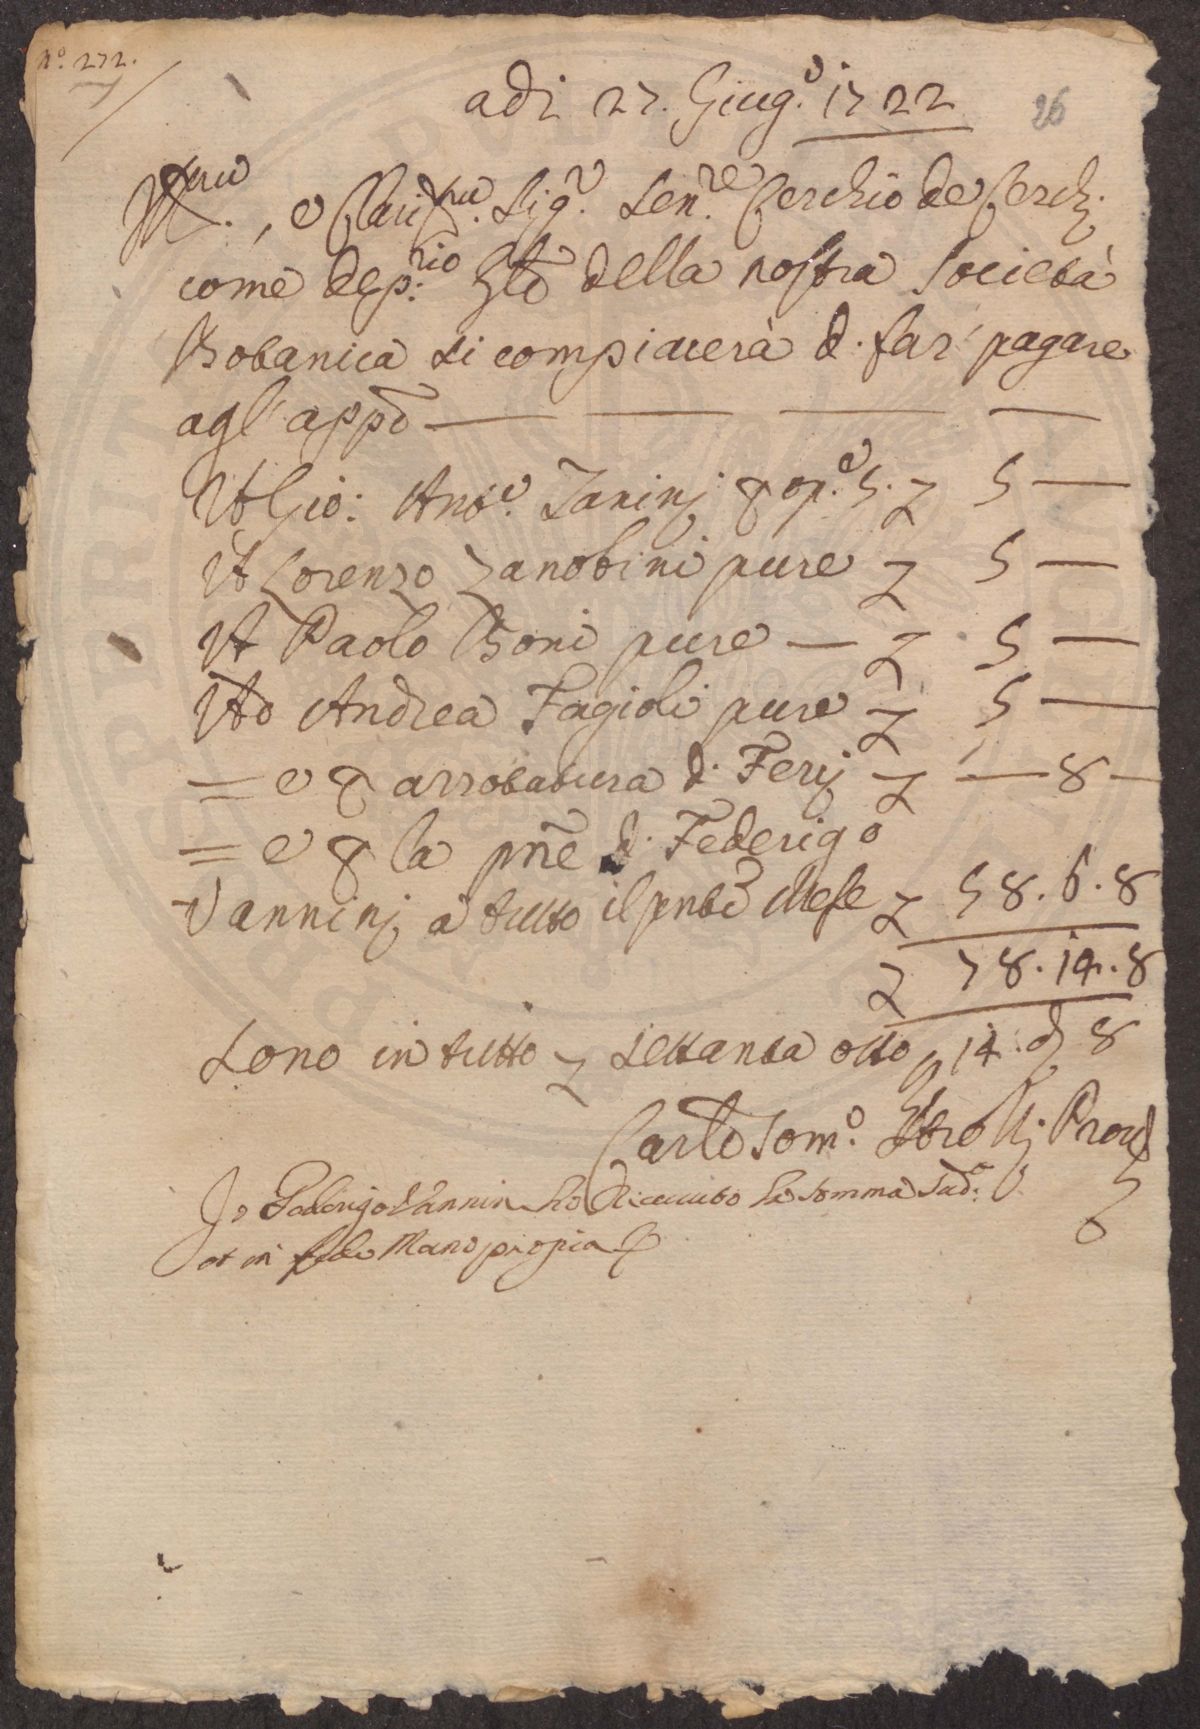 N.° 272.
adi 27. Giug.° 1722
26
Ill.mo, e Clariss.mo Sig.r Sen.re Cerchio de Cerchj
come dep.rio della nostra Società
Botanica si compiacerà d. far pagare
agl' appō
A Gio: Ant.o Zaninj p op.e 5. £ 5 —
A Lorenzo Zanobini pure £ 5 —
A Paolo Boni pure — £ 5 —
Ad Andrea Fagioli pure £ 5 —
= e p arrotatura d. Ferrj £ — 8 —
= e p la pñe d. Federigo
Vanninj a tutto il pnte Mese £ 58. 6. 8
£ 78. 14. 8
Sono in tutto £ settanta otto 14. d 8
Carlo Tom.o Strozzj Prov.
Io Federigo Vannini ho Riceuuto la somma Sud.a
et in fede Mano propia